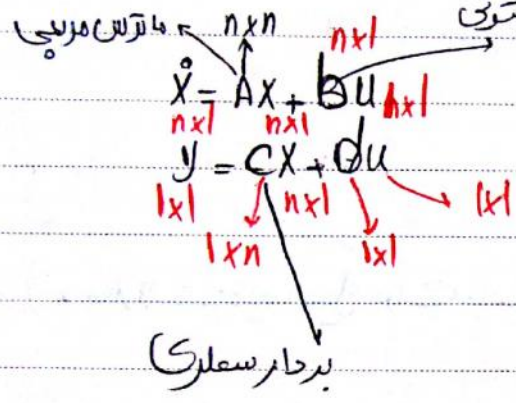 ماتریس مربعی n×n n×1
ẋ = Ax + bu n×1
n×1 n×1
y = cx + du
1×1 n×1 1×1
1×n 1×1
بردار سطری